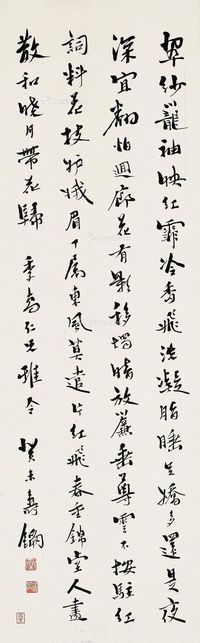 翠紗籠袖映紅霏冷香飛洗凝脂睡足嬌多還是夜
深宜翻怕迴廊花有影移燭暗放簾垂尊雲不按駐紅
詞料花枝妒娥眉丁屬東風莫遣片紅飛春重錦堂人盡
散和曉月帶花歸 季高仁兄雅令 癸未壽鈵